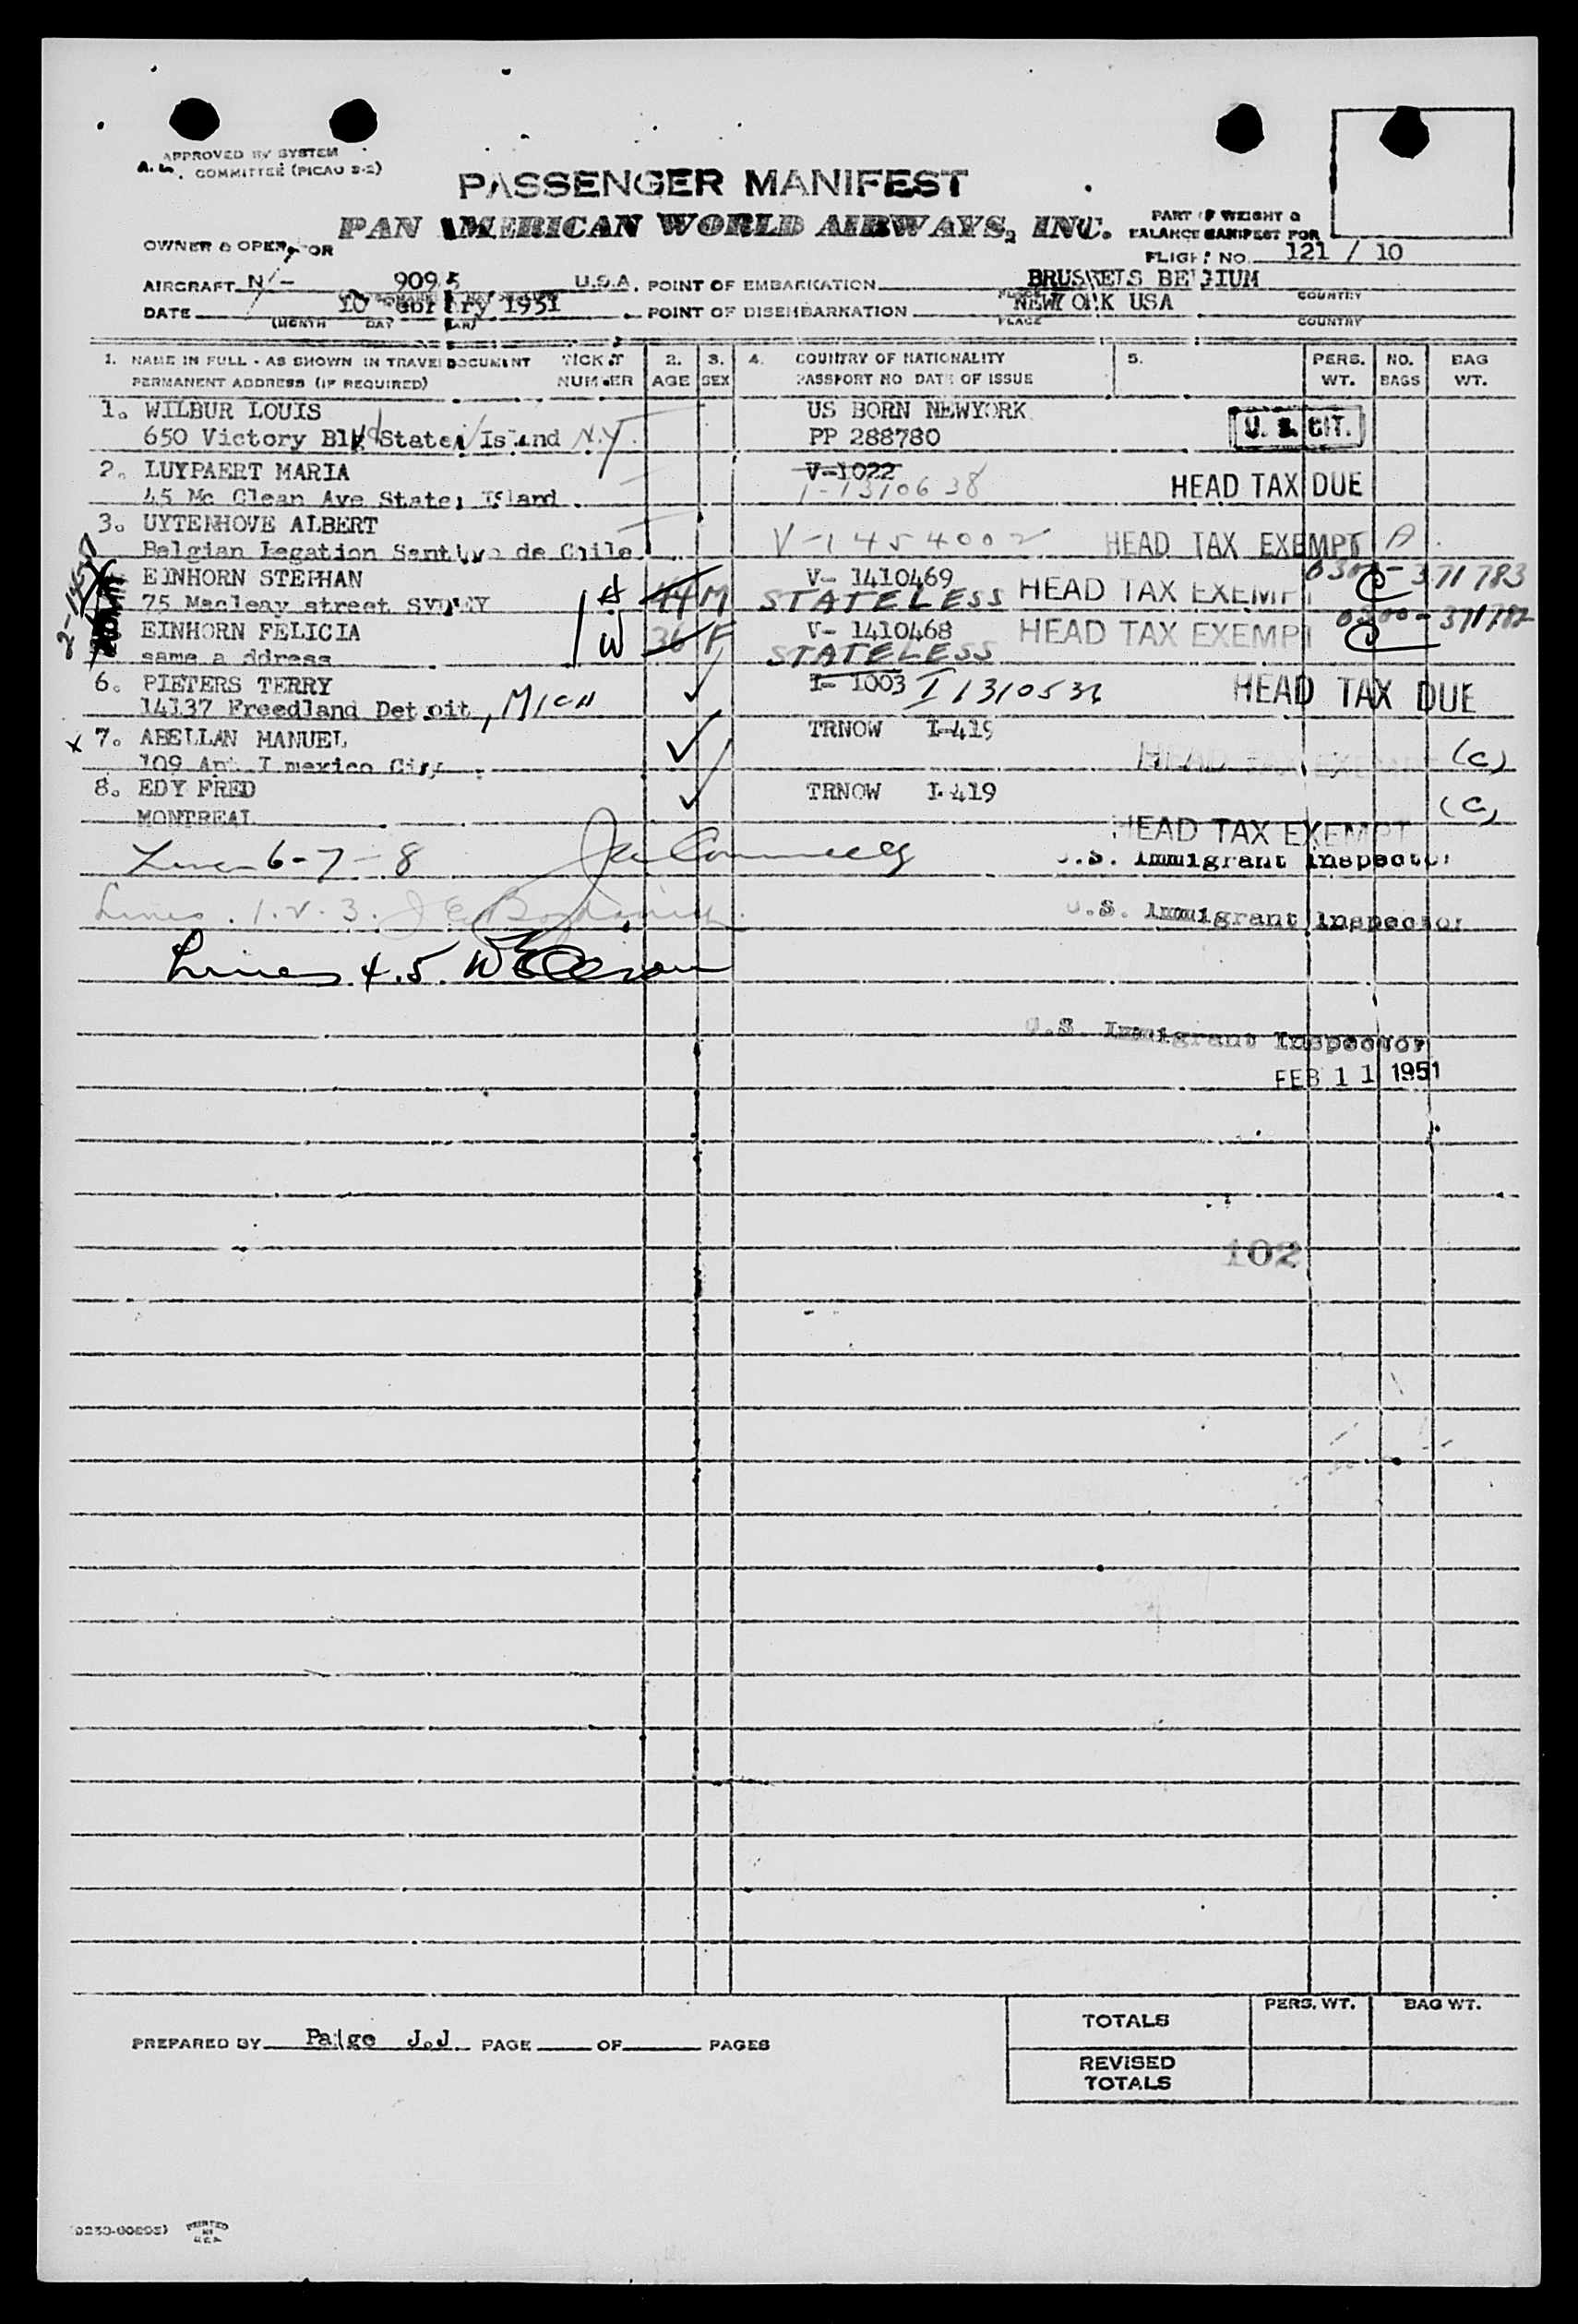 APPROVED BY SYSTEM
COMMITTEE (PICAO 9-2)
PASSENGER MANIFEST
PAN AMERICAN WORLD AIRWAYS, INC.
PART OF WEIGHT &
BALANCE MANIFEST FOR
OWNER & OPERATOR
FLIGHT NO. 121 / 10
AIRCRAFT N - 909 5 U.S.A. POINT OF EMBARKATION BRUSSELS BELGIUM
PLACE COUNTRY
DATE 10 February 1951 POINT OF DISEMBARKATION NEWYORK USA
(MONTH DAY YEAR) PLACE COUNTRY
1. NAME IN FULL - AS SHOWN IN TRAVEL DOCUMENT TICKET 2. 3. 4. COUNTRY OF NATIONALITY 5. PERS. NO. BAG
PERMANENT ADDRESS (IF REQUIRED) NUMBER AGE SEX PASSPORT NO DATE OF ISSUE WT. BAGS WT.
1. WILBUR LOUIS US BORN NEWYORK
650 Victory Blvd Staten Island N.Y. PP 288780 U. S. CIT.
2. LUYPAERT MARIA V-1022
45 Mc Clean Ave Staten Island I-1310638 HEAD TAX DUE
3. UYTENHOVE ALBERT
Belgian Legation Santiago de Chile V-1454002 HEAD TAX EXEMPT A
EINHORN STEPHAN V- 1410469 HEAD TAX EXEMPT C 0300-371783
75 Macleay street SYDNEY H 44 M STATELESS
EINHORN FELICIA V- 1410468 HEAD TAX EXEMPT C 0300-371782
same a ddress W 36 F STATELESS
6. PIETERS TERRY I- 1003 I 1310536 HEAD TAX DUE
14137 Freedland Detroit, MICH
x 7. ABELLAN MANUEL TRNOW I-419
109 Apt I mexico City HEAD TAX EXEMPT (C)
8. EDY FRED TRNOW I-419 (C)
MONTREAL
HEAD TAX EXEMPT
Lines 6-7-8 U.S. Immigrant Inspector
Lines. 1.2.3. U.S. Immigrant Inspector
Lines 4.5.
U.S. Immigrant Inspector
FEB 11 1951
102
TOTALS PERS. WT. BAG WT.
PREPARED BY Paige J.J. PAGE OF PAGES
REVISED
TOTALS
PRINTED
IN
U.S.A.